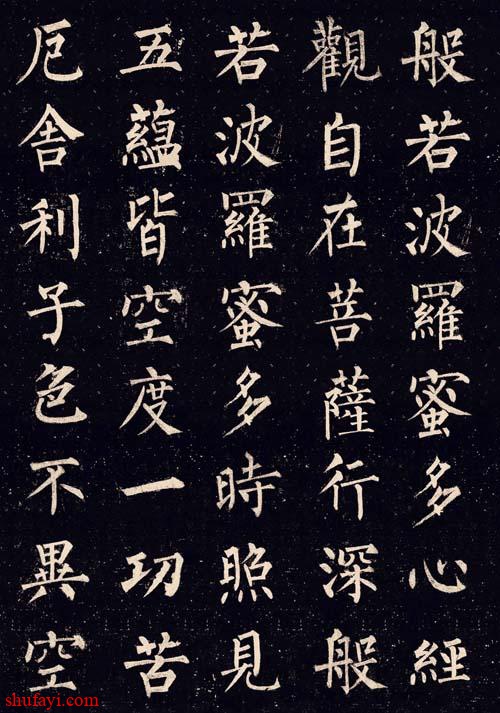 般若波羅蜜多心經
觀自在菩薩行深般
若波羅蜜多時照見
五蘊皆空度一切苦
厄舍利子色不異空
shufayi.com